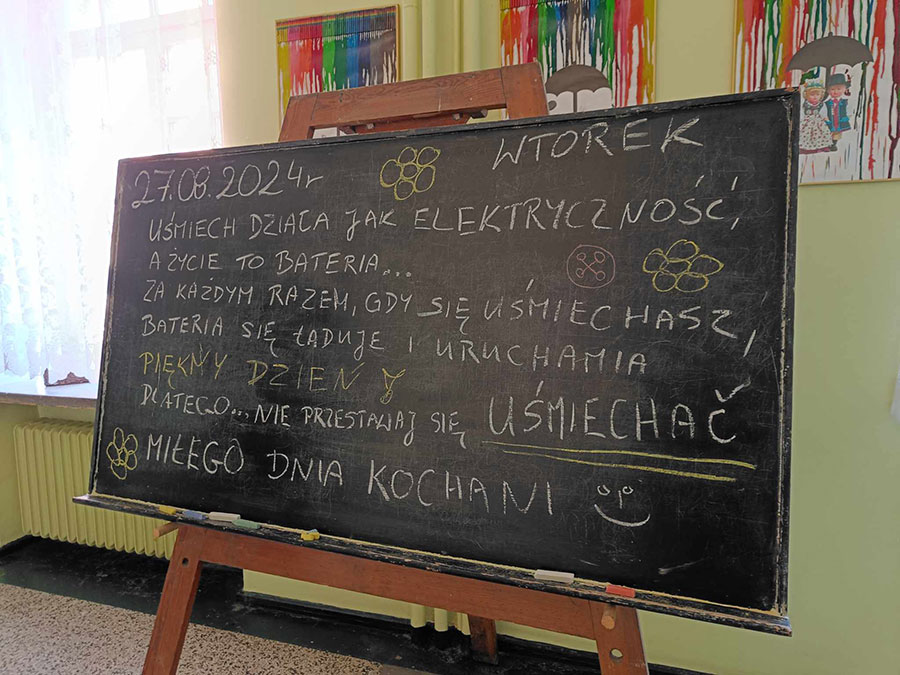 27.08.2024r WTOREK
UŚMIECH DZIAŁA JAK ELEKTRYCZNOŚĆ,
A ŻYCIE TO BATERIA...
ZA KAŻDYM RAZEM, GDY SIĘ UŚMIECHASZ,
BATERIA SIĘ ŁADUJE I URUCHAMIA
PIĘKNY DZIEŃ!
DLATEGO... NIE PRZESTAWAJ SIĘ UŚMIECHAČ
MIŁEGO DNIA KOCHANI